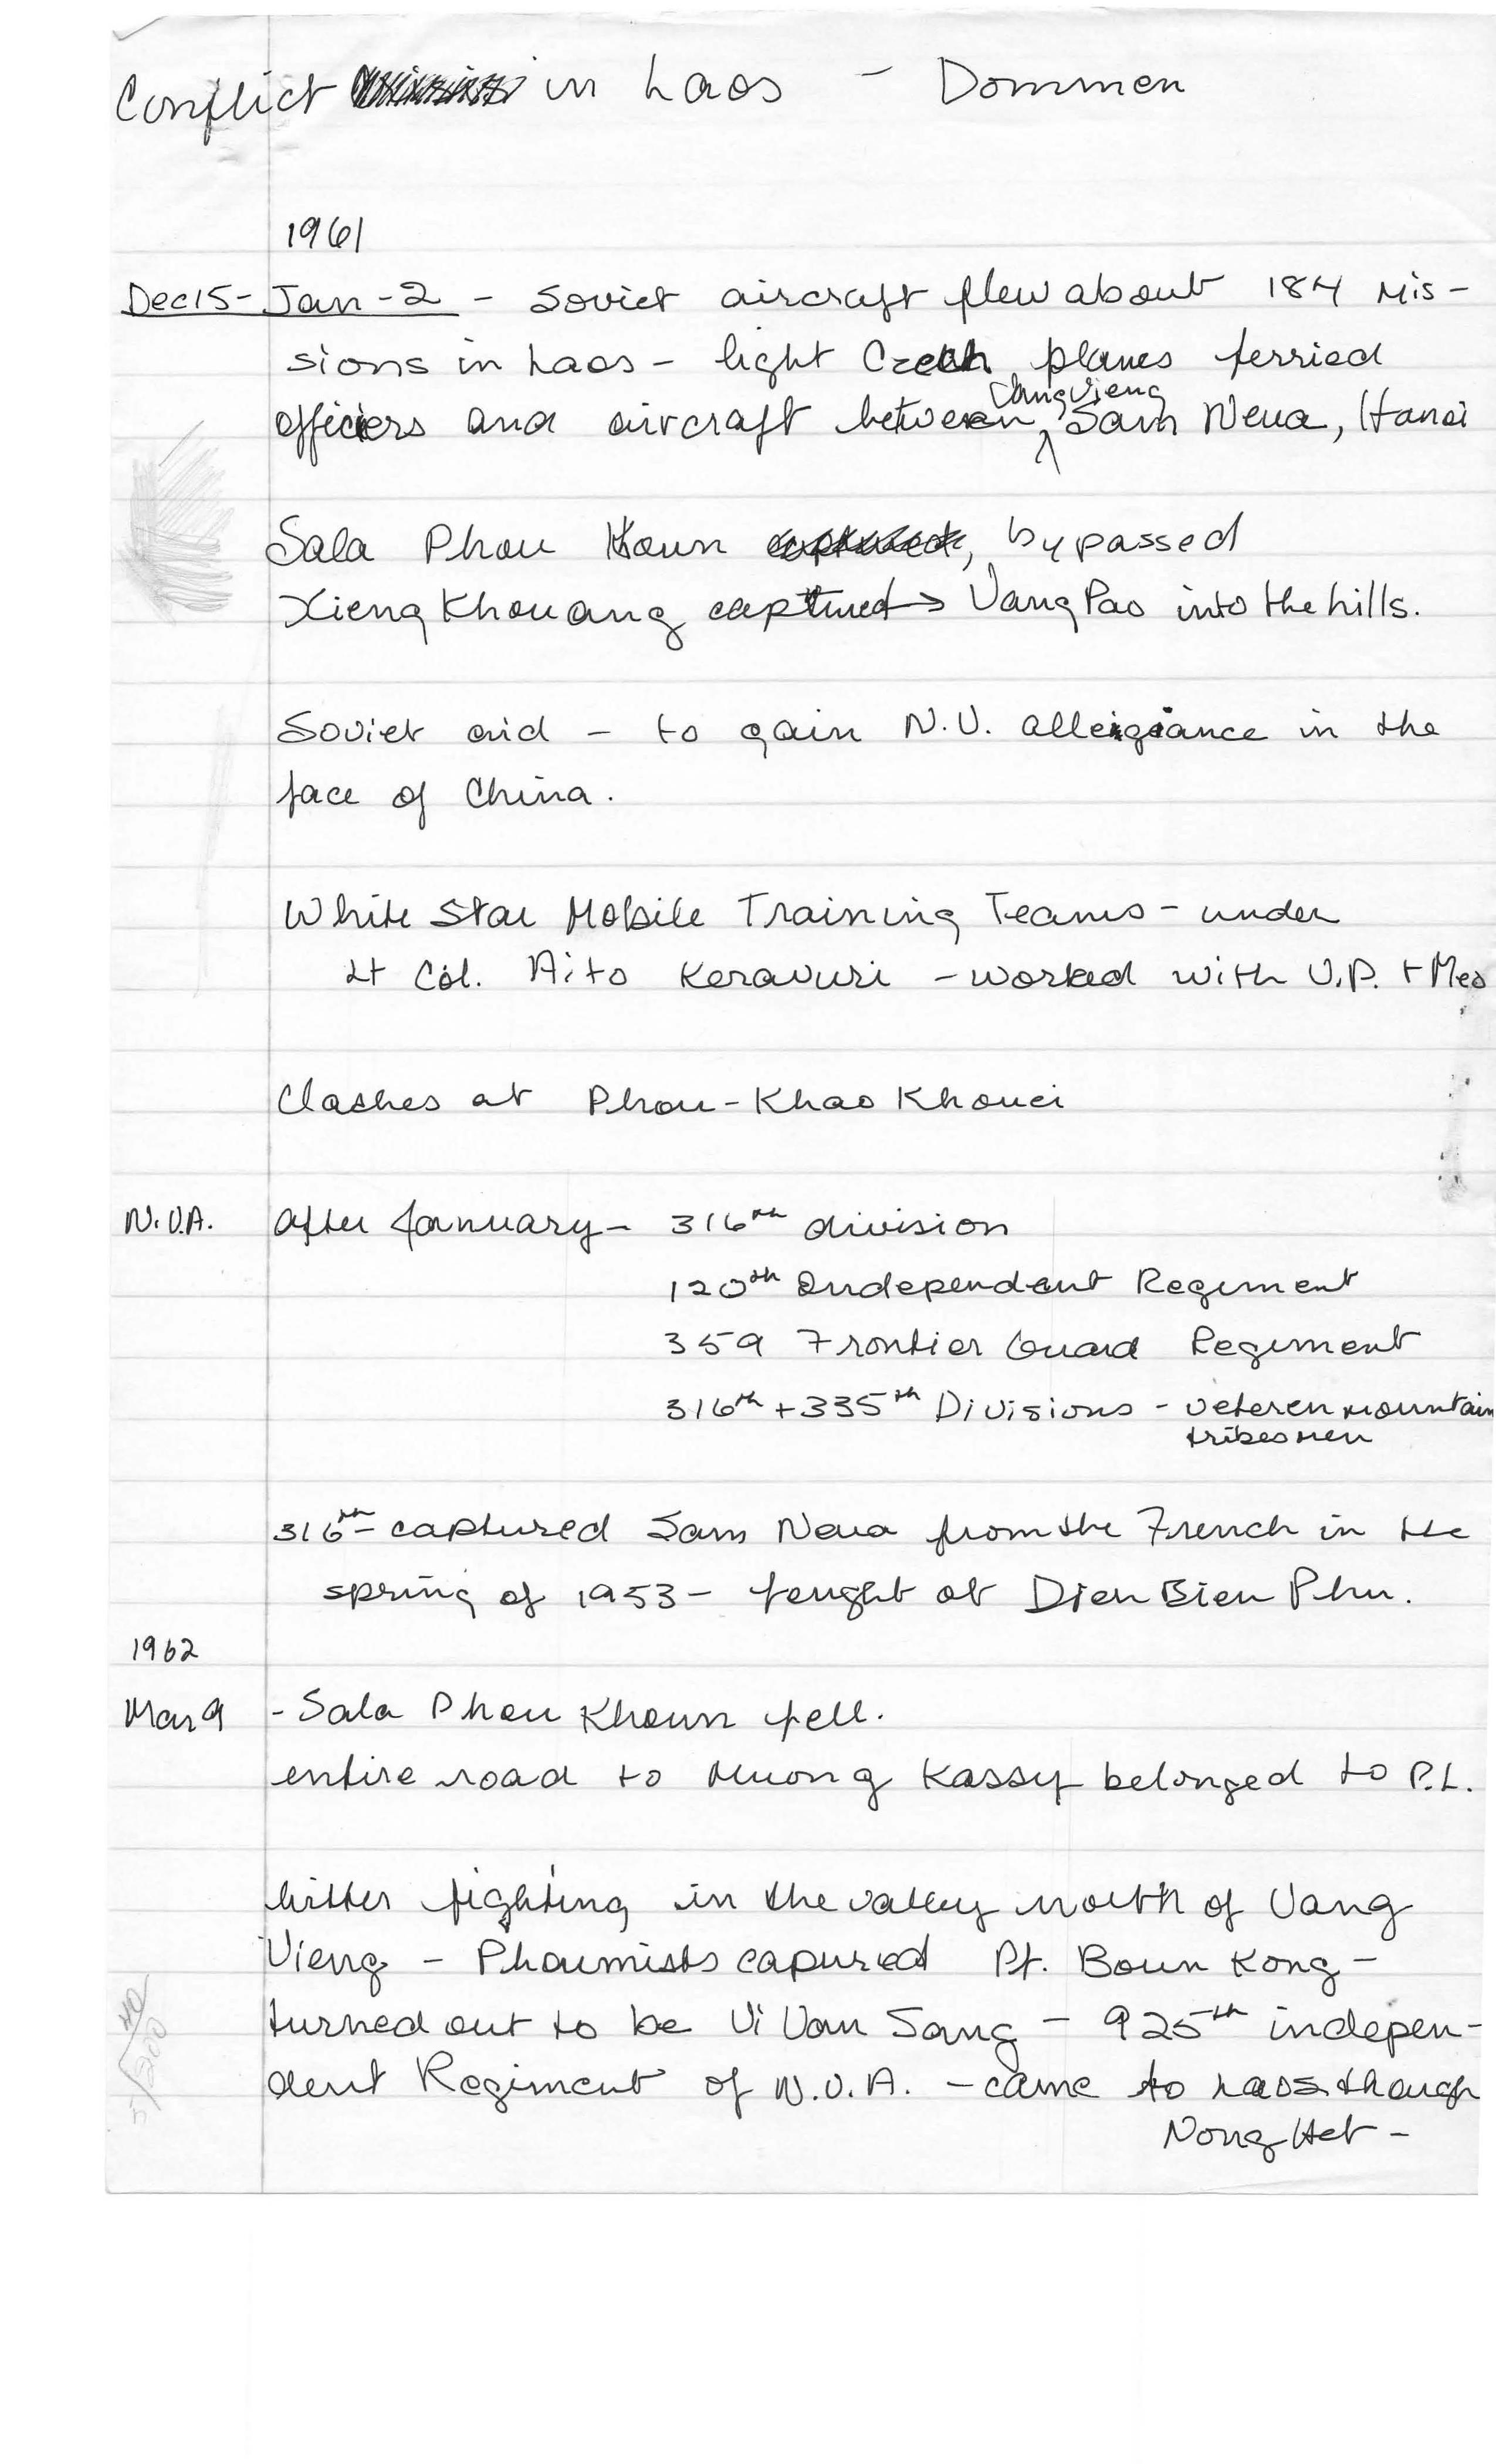 Conflict in Laos - Dommen
1961
Dec15- Jan-2 - Soviet aircraft flew about 184 Mis-
sions in Laos - light Czech planes ferried
Vang Vieng
officiers and aircraft between, Sam Neua, Hanoi
Sala Phou Koun , bypassed
Xieng Khouang captured → Vang Pao into the hills.
Soviet aid - to gain N.V. alleigiance in the
face of China.
White Star Mobile Training Teams - under
Lt Col. Aito Keravuri - worked with V.P. + Meo
Clashes at Phou-Khao Khouei
N.V.A. after January - 316th division
120th Independent Regiment
359 Frontier Guard Regiment
316th + 335th Divisions - veteren mountain
tribesmen
316th - captured Sam Neua from the French in the
spring of 1953 - fought at Dien Bien Phu.
1962
Mar 9 - Sala Phou Khoun fell.
entire road to Muong Kassy belonged to P.L.
bitter fighting in the valley north of Vang
Vieng - Phoumists capured Pt. Boun Kong -
turned out to be Vi Van Sang - 925th indepen-
dent Regiment of N.V.A. - came to Laos though
Nong Het -